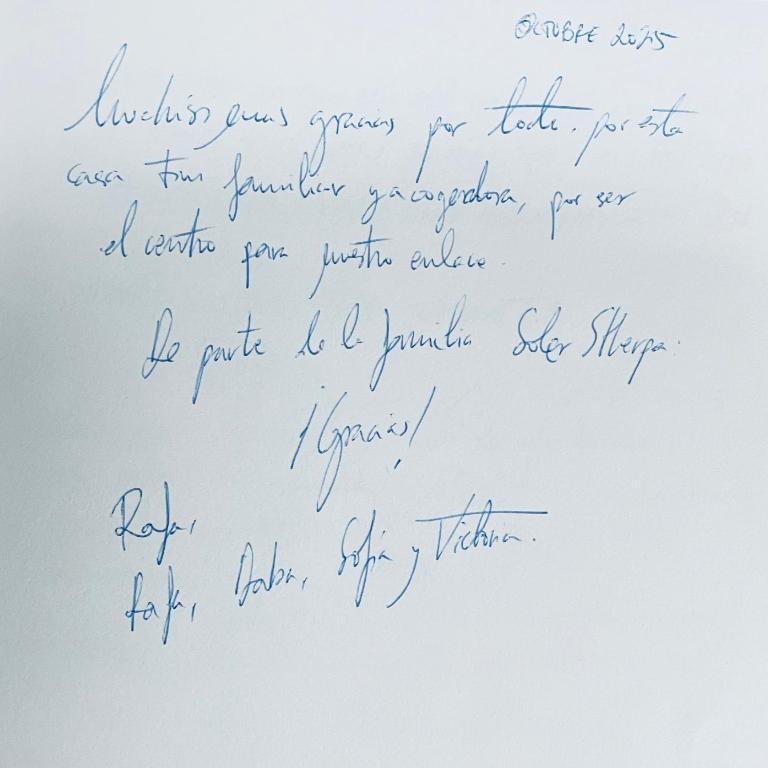 OCTUBRE 2025
Muchisimas gracias por todo. por esta
casa tan familiar y acogedora, por ser
el centro para nuestro enlace.
De parte de la familia Soler Sherpa.
¡Gracias!
Rafa,
Rafa, Daba, Sofía y Victoria.